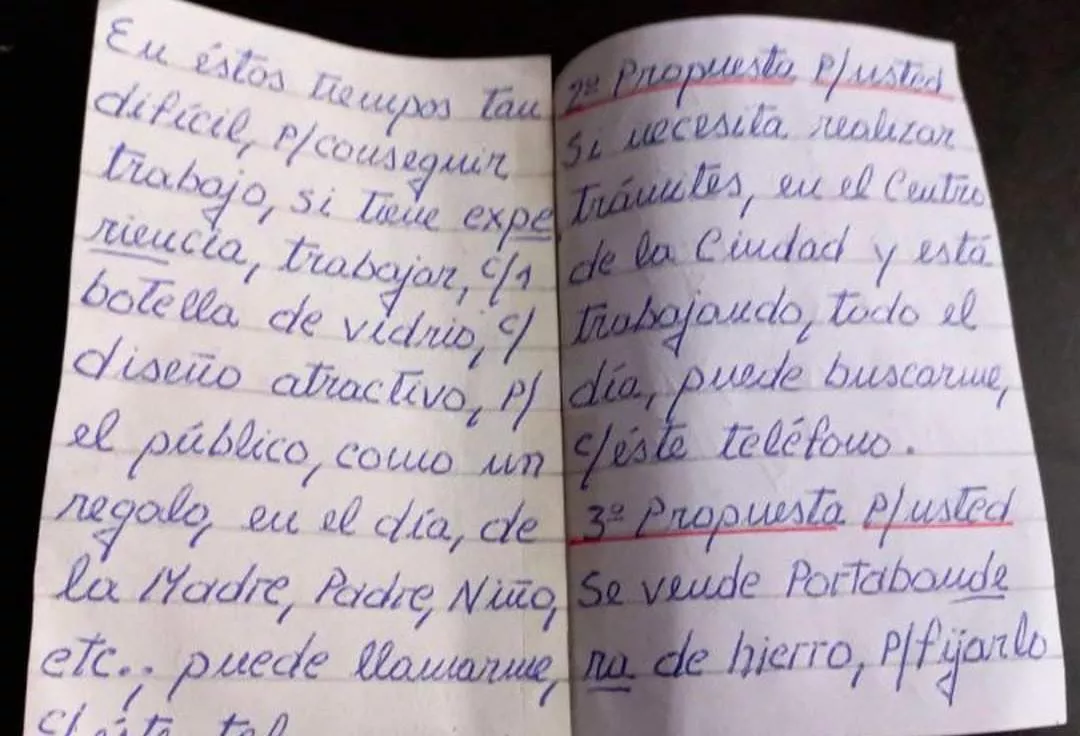 En éstos tiempos tan
difícil, P/conseguir
trabajo, si tiene expe
riencia, trabajar, c/1
botella de vidrio, c/
diseño atractivo, P/
el público, como un
regalo, en el día, de
la Madre, Padre, Niño,
etc.; puede llamarme,
c/ éste tel
2ª Propuesta P/usted
Si necesita realizar
trámites, en el Centro
de la Ciudad y está
trabajando, todo el
día, puede buscarme,
c/éste teléfono.
3ª Propuesta P/usted
Se vende Portabande
ra de hierro, P/fijarlo